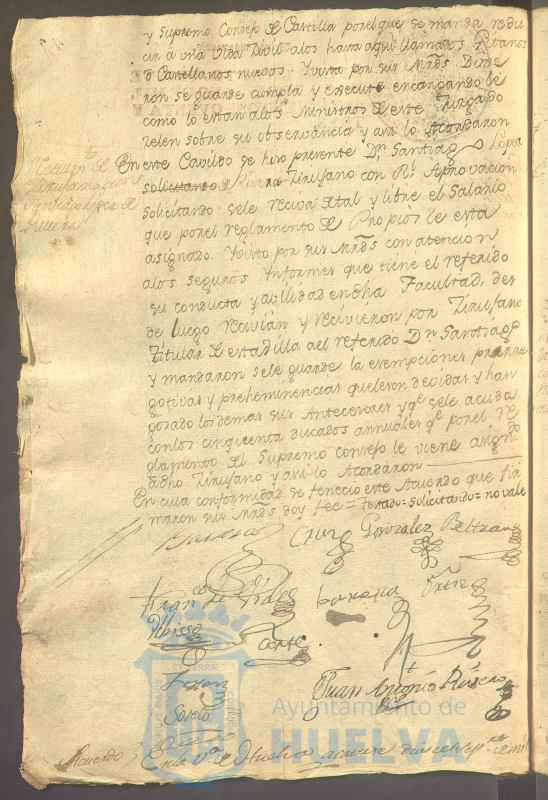 y Supremo Consejo de Castilla por el que se manda redu
cir a una vida civil a los hasta aqui llamados Gitanos
o Castellanos nuevos. Y visto por sus Mrds Dixe
ron se guarde cumpla y execute encargando le
como lo estan a los Ministros de este Juzgado
zelen sobre su observancia y asi lo Acordaron
En este Cavildo se hizo presente Dn Santiago Lopez
solicitando de Rivera Zirujano con Rl Aprovacion
solicitando se le reciva de tal y libre el Salario
que por el reglamento de Propios le esta
asignado. Y visto por sus Mrds con atencion
a los seguros Ynformes que tiene el referido
su conducta y avilidad en dha Facultad, des
de luego recivian y recivieron por Zirujano
Titular de esta Villa a el referido Dn Santiago
y mandaron se le guarde la exempciones prerre
gotivas y preheminencias que le son devidas y han
gozado los demas sus Antecesores y qe se le acuda
con los cinquenta ducados annuales qe por el re
glamento del Supremo Consejo le viene asignado
a dho Zirujano y asi lo Acordaron
En cuia conformidad se fenecio este Acuerdo que fir
maron sus Mrds doy fee = testado = solicitando = no vale
Cruz Gonzalez Beltran
Franco de
Cortes
Juan Antonio Rivero
Sotelo
ET TERRÆ
Ayuntamiento de
HUELVA
Acuerdo } En la Va de Huelva a